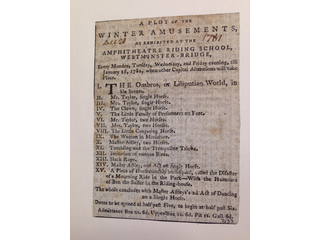 A PLOT OF THE
WINTER AMUSEMENTS,
AS EXHIBITED AT THE
AMPHITHEATRE RIDING SCHOOL,
WESTMINSTER-BRIDGE,
1781
Every Monday, Tuesday, Wednesday, and Friday evening, till
January 28, 1782, when other Capital Alterations will take
Place.
I. THE Ombres, or Lilliputian World, in
his Scenes.
II. Mr. Taylor, single Horse.
III. Mrs. Taylor, single Horse.
IV. The Clown, single Horse.
V. The Little Family of Performers on Foot.
VI. Mr. Taylor, two Horses.
VII. Mrs. Taylor, two Horses.
VIII. The Little Conjuring Horse.
IX. The Woman in Miniature.
X. Master Astley, two Horses.
XI. Tumbling and the Trampoline Tricks.
XII. of various Birds.
XIII. Slack Rope.
XIV. Master Astley, on single Horse.
XV. A Piece of called, the Disaster
of a Mounting Ride in the Park—With the Humours
of Ben the Sailor in the Riding-house.
The whole concludes with Master Astley's Act of Dancing
on a single Horse.
Doors to be opened at half past Five, to begin at half past Six.
Admittance Box 2s. 6d. Upper Box 2s. 6d. Pit 1s. Gall. 6d.